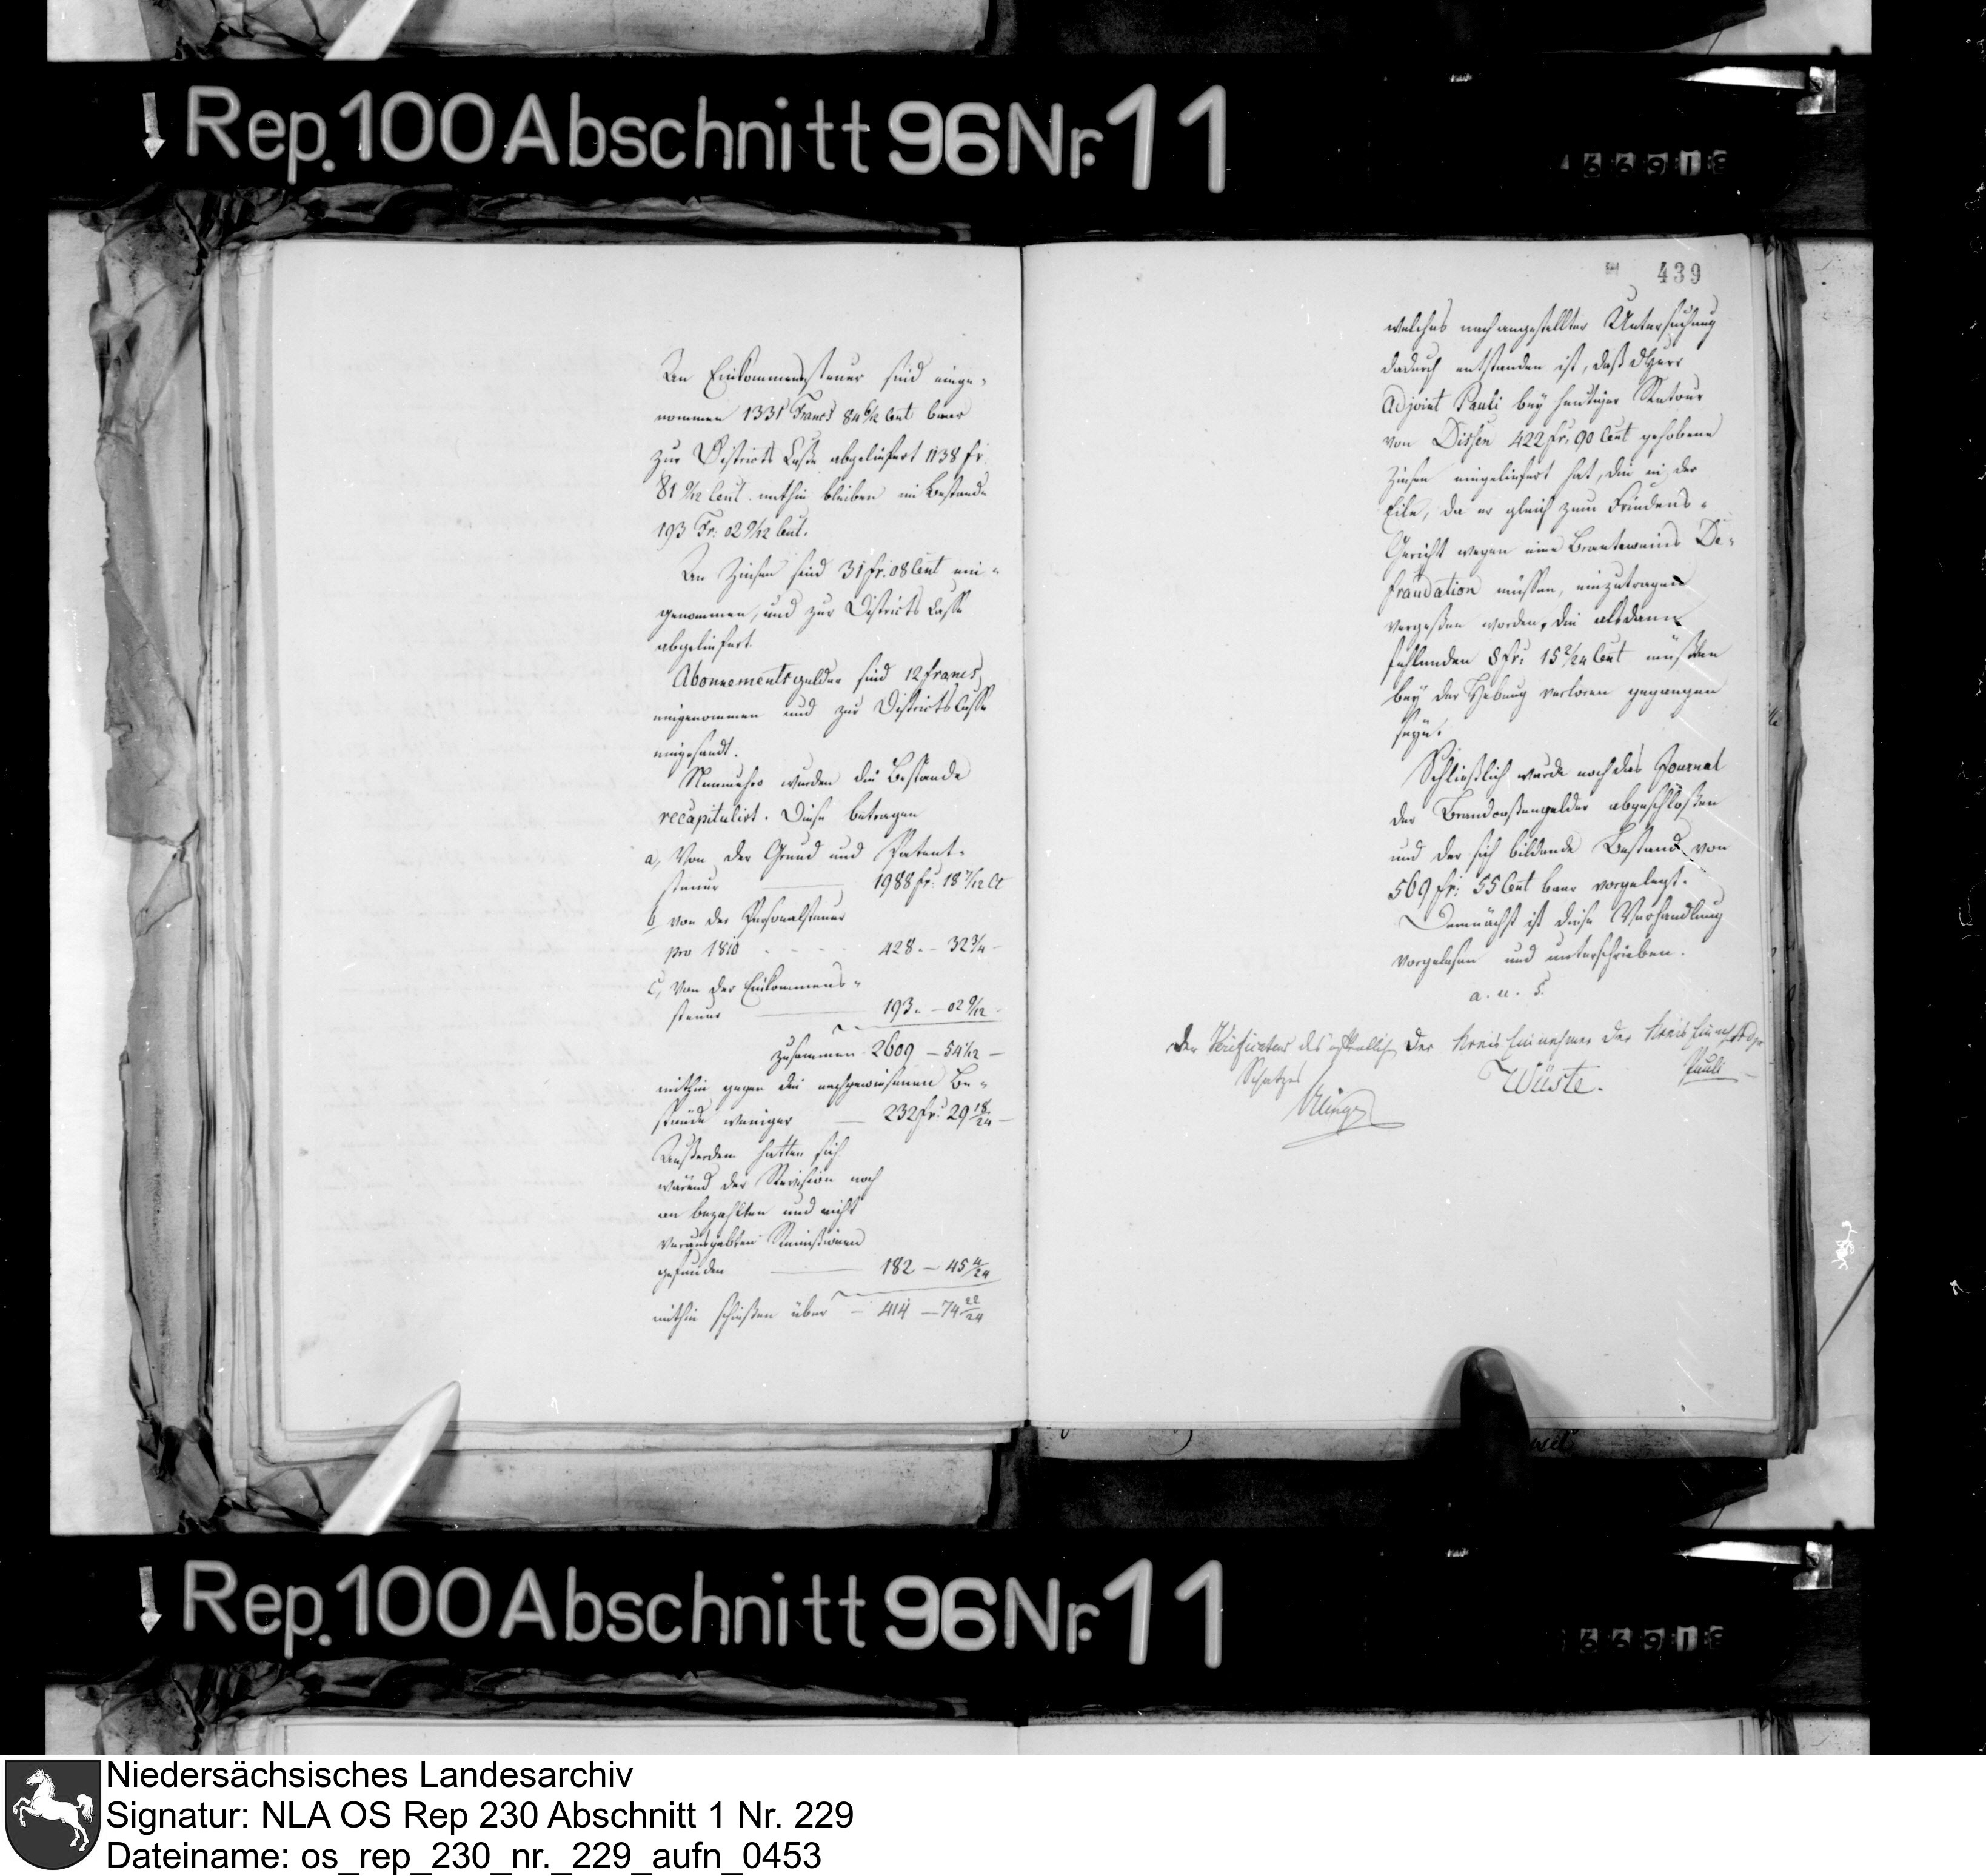 Rep. 100 Abschnitt 96 Nr. 11
An Einkommenssteuer sind einge-
nommen 1331 Francs 84 6/12 Cent baar
zur Districts Casse abgeliefert 1138 fr.
81 9/12 Cent. mithin bleiben im Bestande
193 Fr: 02 9/12 Cent.
An Zinsen sind 31 fr: 08 Cent ein-
genommen, und zur Districts Casse
abgeliefert.
Abonnementsgelder sind 12 francs
eingenommen und zur Districts Casse
eingesandt.
Nunmehro wurden die Bestände
recapitulirt. Diese betragen
a, Von der Grund und Patent-
steuer 1988 fr: 18 7/12 Ct
b von der Personalsteuer
pro 1810 - - - 428. - 32 3/4 -
c, Von der Einkommens-
steuer 193. - 02 9/12 -
zusammen 2609 - 54 1/12 -
mithin gegen die nachgewiesenen Be-
stände weniger 232 fr: 29 18/24 -
Außerdem hatten sich
wärend der Revision noch
an bezahlten und nicht
verausgabten Remissionen
gefunden 182 - 45 4/24
mithin schießen über - 414 - 74 22/24
439
welches nach angestellter Untersuchung
dadurch entstanden ist, daß dHerr
Adjoint Pauli bey heutiger Retour
von Dissen 422 fr: 90 Cent gehobene
Zinsen eingeliefert hat, die in der
Eile, da er gleich zum Friedens-
Gericht wegen eine Branteweins De-
fraudation müssen, einzutragen
vergeßen worden, die alsdann
fehlenden 8 fr: 15 2/24 Cent müßten
bey der Hebung verloren gegangen
seyn.
Schließlich wurde noch das Journal
der Brandcassengelder abgeschloßen
und der sich bildende Bestand von
569 fr: 55 Cent baar vorgelegt.
Demnächst ist diese Verhandlung
vorgelesen und unterschrieben.
a. u. s.
Der Verificateur des öffentlichen Der Kreis Einnehmer Der Kreis Einneh Adj
Schatzes Wüste. Pauli
Rep. 100 Abschnitt 96 Nr. 11
Niedersächsisches Landesarchiv
Signatur: NLA OS Rep 230 Abschnitt 1 Nr. 229
Dateiname: os_rep_230_nr._229_aufn_0453